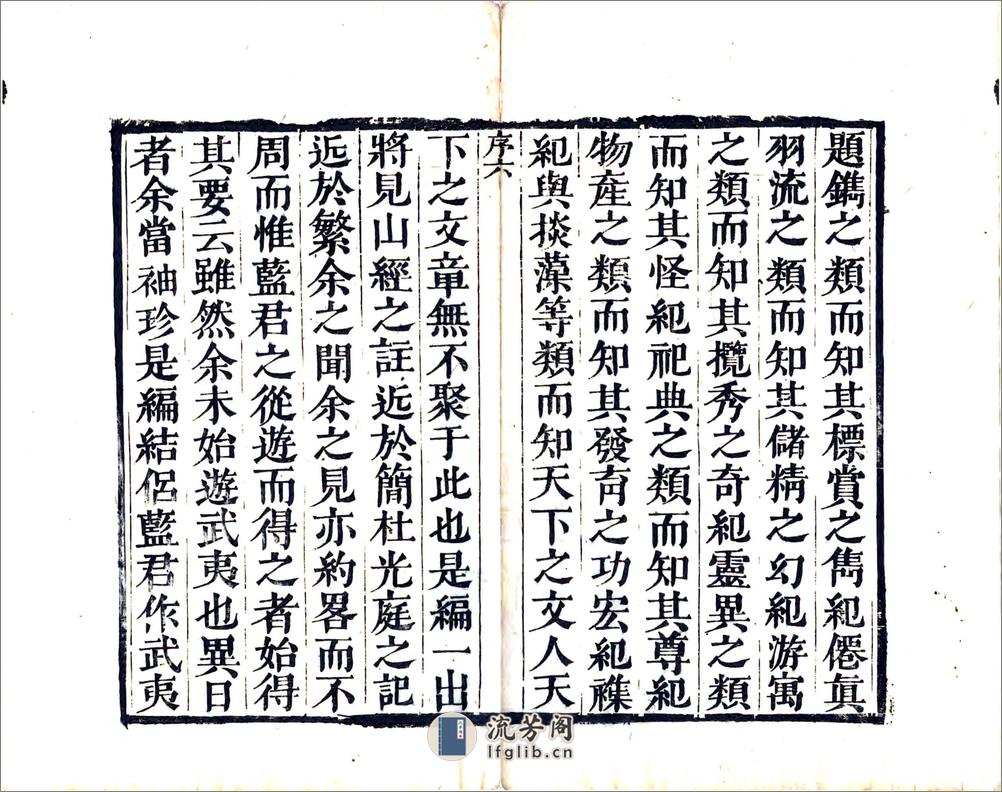 題鐫之類而知其標賞之雋紀僊眞
羽流之類而知其儲精之幻紀游寓
之類而知其攬秀之奇紀靈異之類
而知其怪紀祀典之類而知其尊紀
物産之類而知其發育之功宏紀襍
紀與掞藻等類而知天下之文人天
序六
下之文章無不聚于此也是編一出
將見山經之註近於簡杜光庭之記
近於繁余之聞余之見亦約畧而不
周而惟藍君之從遊而得之者始得
其要云雖然余未始遊武夷也異日
者余當袖珍是編結侶藍君作武夷
流芳阁
lfglib.cn